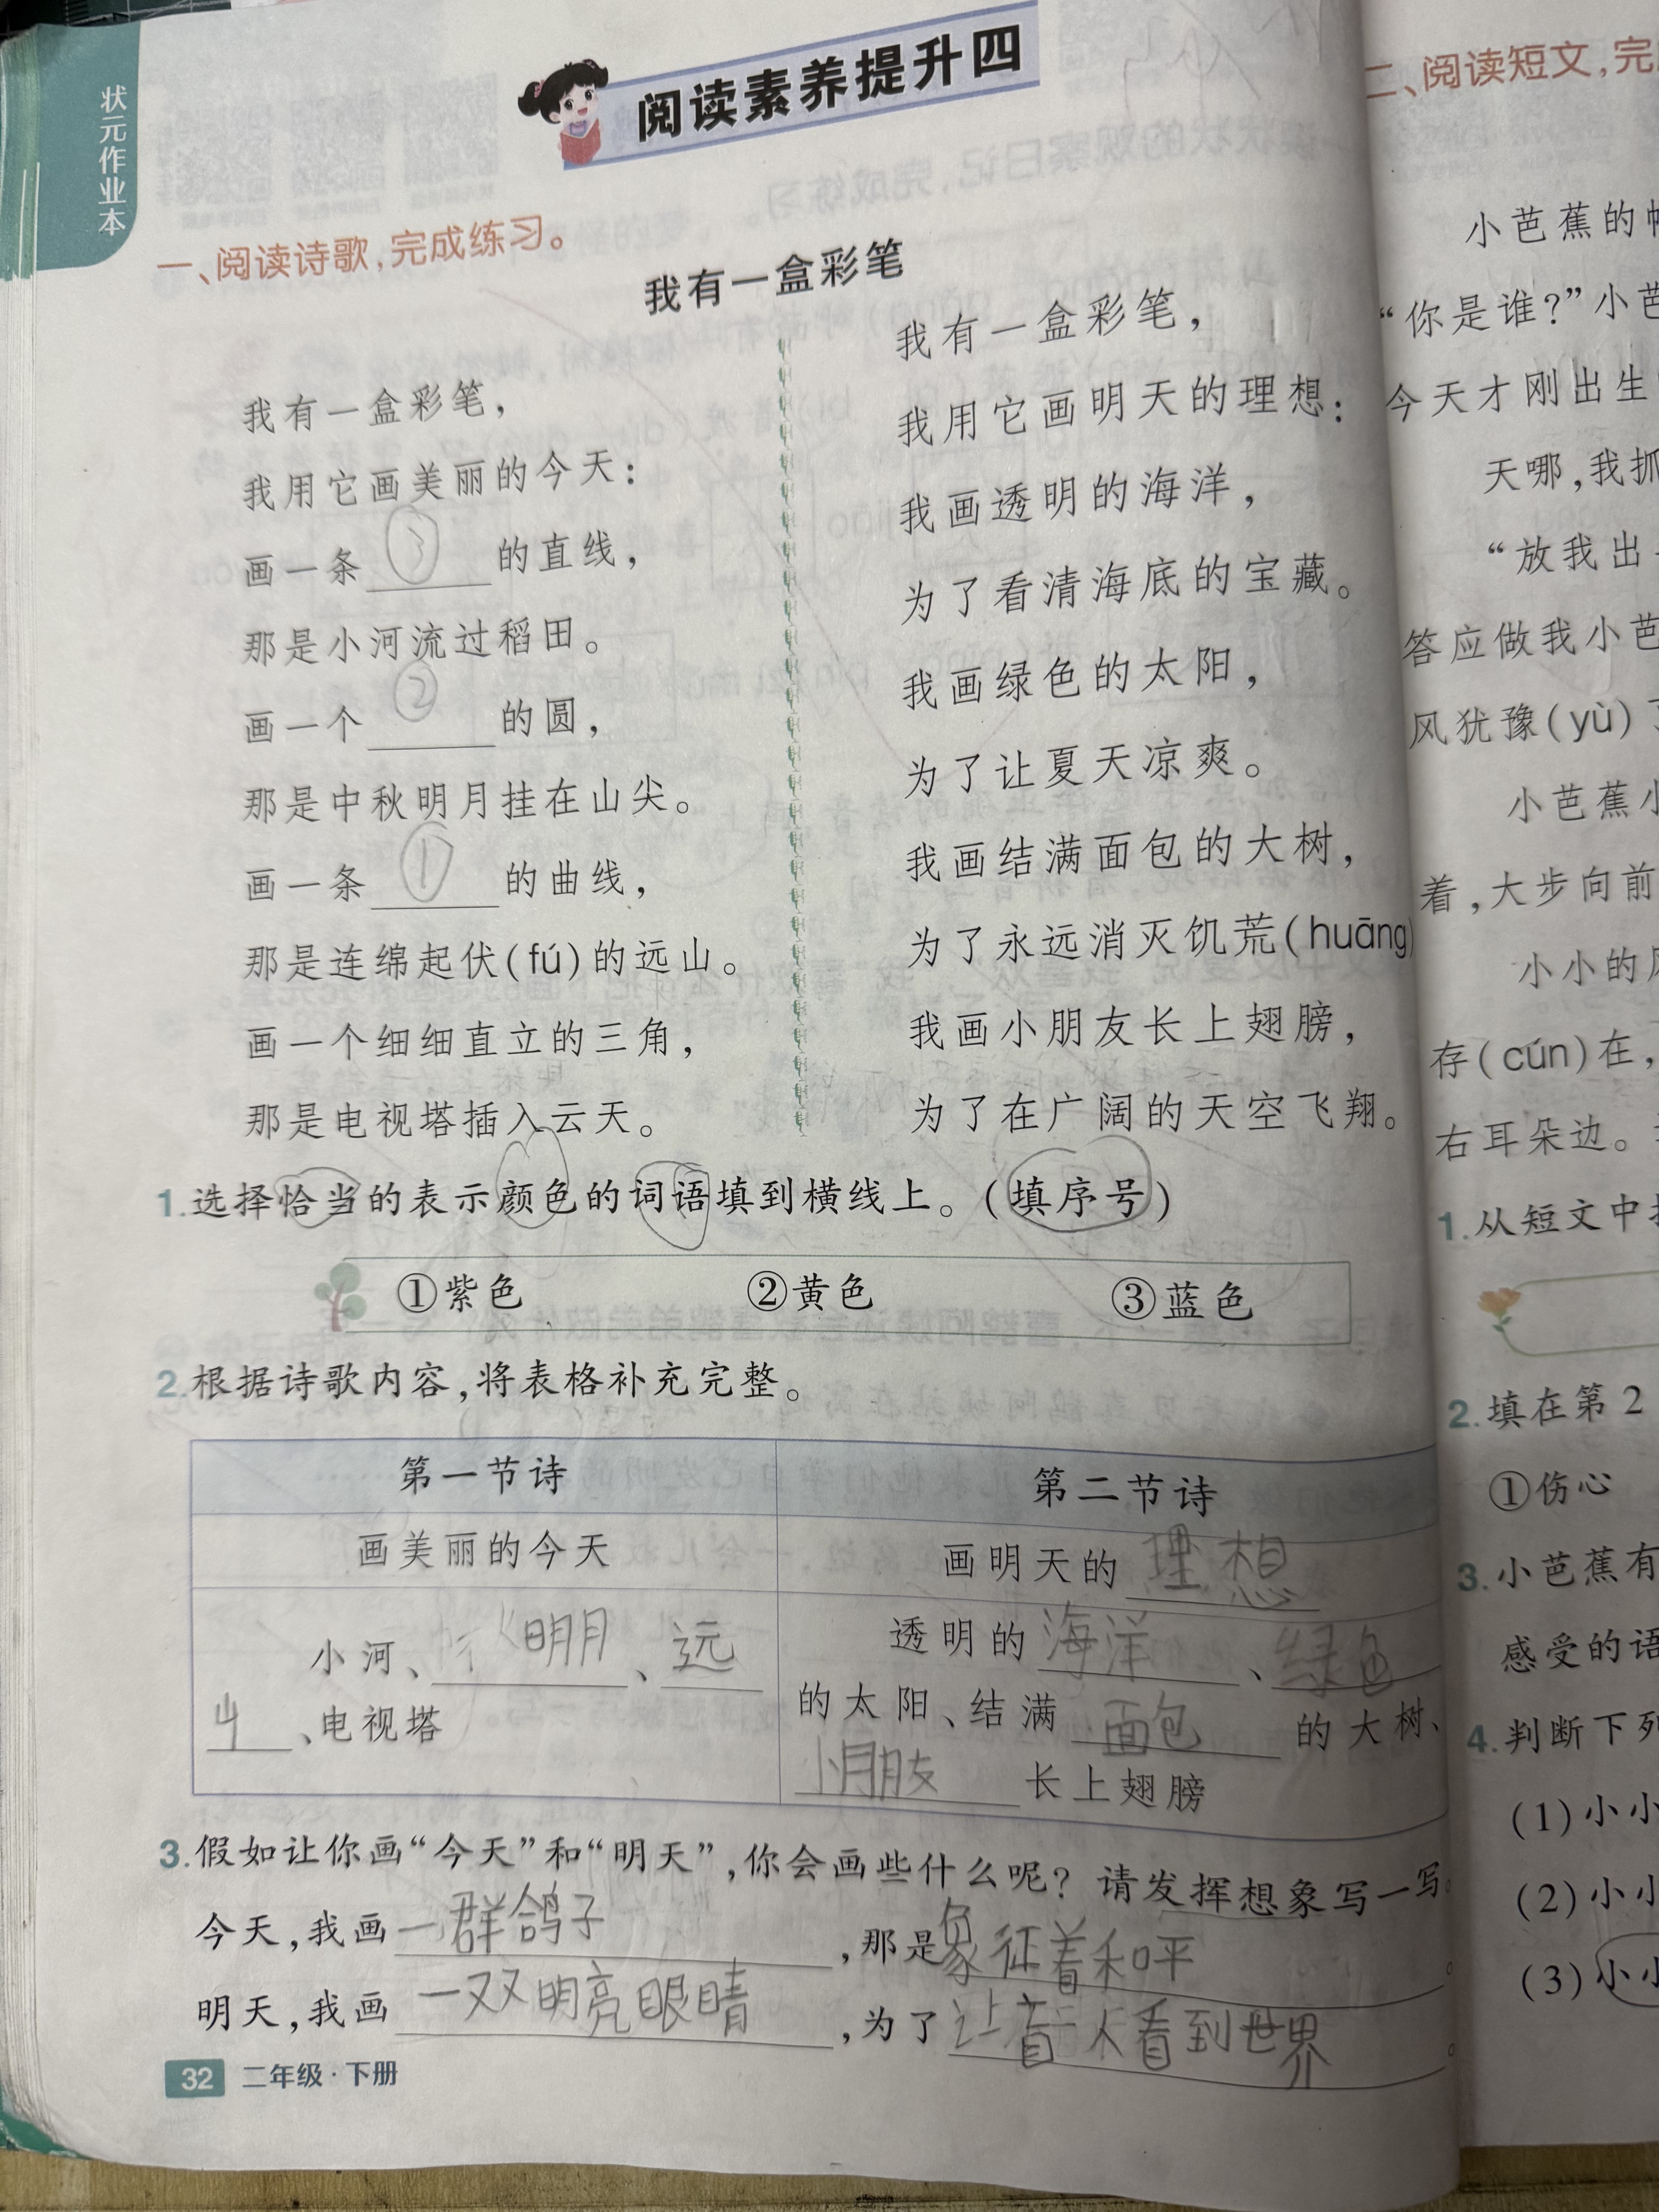 状元作业本
阅读素养提升四
一、阅读诗歌，完成练习。
我有一盒彩笔
我有一盒彩笔，
我用它画美丽的今天：
画一条③的直线，
那是小河流过稻田。
画一个②的圆，
那是中秋明月挂在山尖。
画一条①的曲线，
那是连绵起伏(fú)的远山。
画一个细细直立的三角，
那是电视塔插入云天。
我有一盒彩笔，
我用它画明天的理想：
我画透明的海洋，
为了看清海底的宝藏。
我画绿色的太阳，
为了让夏天凉爽。
我画结满面包的大树，
为了永远消灭饥荒(huāng)
我画小朋友长上翅膀，
为了在广阔的天空飞翔。
1.选择恰当的表示颜色的词语填到横线上。(填序号)
①紫色 ②黄色 ③蓝色
2.根据诗歌内容，将表格补充完整。
第一节诗 第二节诗
画美丽的今天 画明天的理想
小河、明月、远
山、电视塔
透明的海洋、绿色
的太阳、结满面包的大树、
小朋友长上翅膀
3.假如让你画“今天”和“明天”，你会画些什么呢？请发挥想象写一写。
今天，我画一群鸽子，那是象征着和平。
明天，我画一双明亮眼睛，为了让盲人看到世界。
32 二年级·下册
二、阅读短文，完
小芭蕉的
“你是谁？”小芭
今天才刚出生
天哪，我抓
“放我出
答应做我小芭
风犹豫(yù)了
小芭蕉小
着，大步向前
小小的风
存(cún)在，
右耳朵边。
1.从短文中
2.填在第2
①伤心
3.小芭蕉有
感受的语
4.判断下列
(1)小小
(2)小小
(3)小小